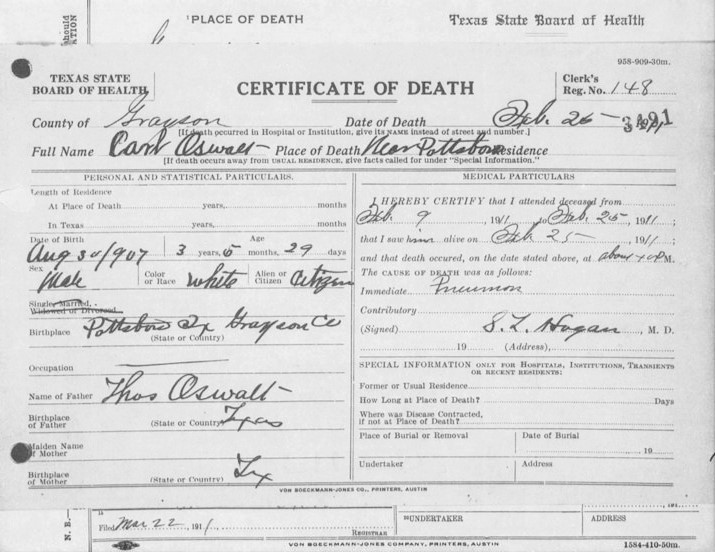 should
PLACE OF DEATH Texas State Board of Health
958-909-30m.
TEXAS STATE
BOARD OF HEALTH
CERTIFICATE OF DEATH
Clerk's
Reg. No. 148
County of Grayson Date of Death Feb. 26 - 1911
3491
[If death occurred in Hospital or Institution, give its NAME instead of street and number.]
Full Name Carl Oswalt Place of Death Near Pottsboro Residence
[If death occurs away from USUAL RESIDENCE, give facts called for under "Special Information."]
PERSONAL AND STATISTICAL PARTICULARS.
Length of Residence
At Place of Death years, months
In Texas years, months
Date of Birth Age
Aug 30/907 3 years, 5 months, 29 days
Sex
Male Color or Race White Alien or Citizen Citizen
Single, Married,
Widowed or Divorced
Birthplace Pottsboro Tx Grayson Co
(State or Country)
Occupation
Name of Father Thos Oswalt
Birthplace
of Father (State or Country) Texas
Maiden Name
of Mother
Birthplace
of Mother (State or Country) Tx
MEDICAL PARTICULARS
I HEREBY CERTIFY that I attended deceased from
Feb. 9 1911 to Feb. 25 - 1911 ;
that I saw him alive on Feb 25 - 1911 ;
and that death occurred, on the date stated above, at about 4 P M.
The CAUSE OF DEATH was as follows:
Immediate Pneumon
Contributory
(Signed) S. L. Hogan , M. D.
19 (Address),
SPECIAL INFORMATION ONLY FOR HOSPITALS, INSTITUTIONS, TRANSIENTS
OR RECENT RESIDENTS:
Former or Usual Residence
How Long at Place of Death? Days
Where was Disease Contracted,
if not at Place of Death?
Place of Burial or Removal Date of Burial
19
Undertaker Address
VON BOECKMANN-JONES CO., PRINTERS, AUSTIN
N. B.
Filed Mar 22 , 1911
REGISTRAR
UNDERTAKER ADDRESS
VON BOECKMANN-JONES COMPANY, PRINTERS, AUSTIN
1584-410-50m.